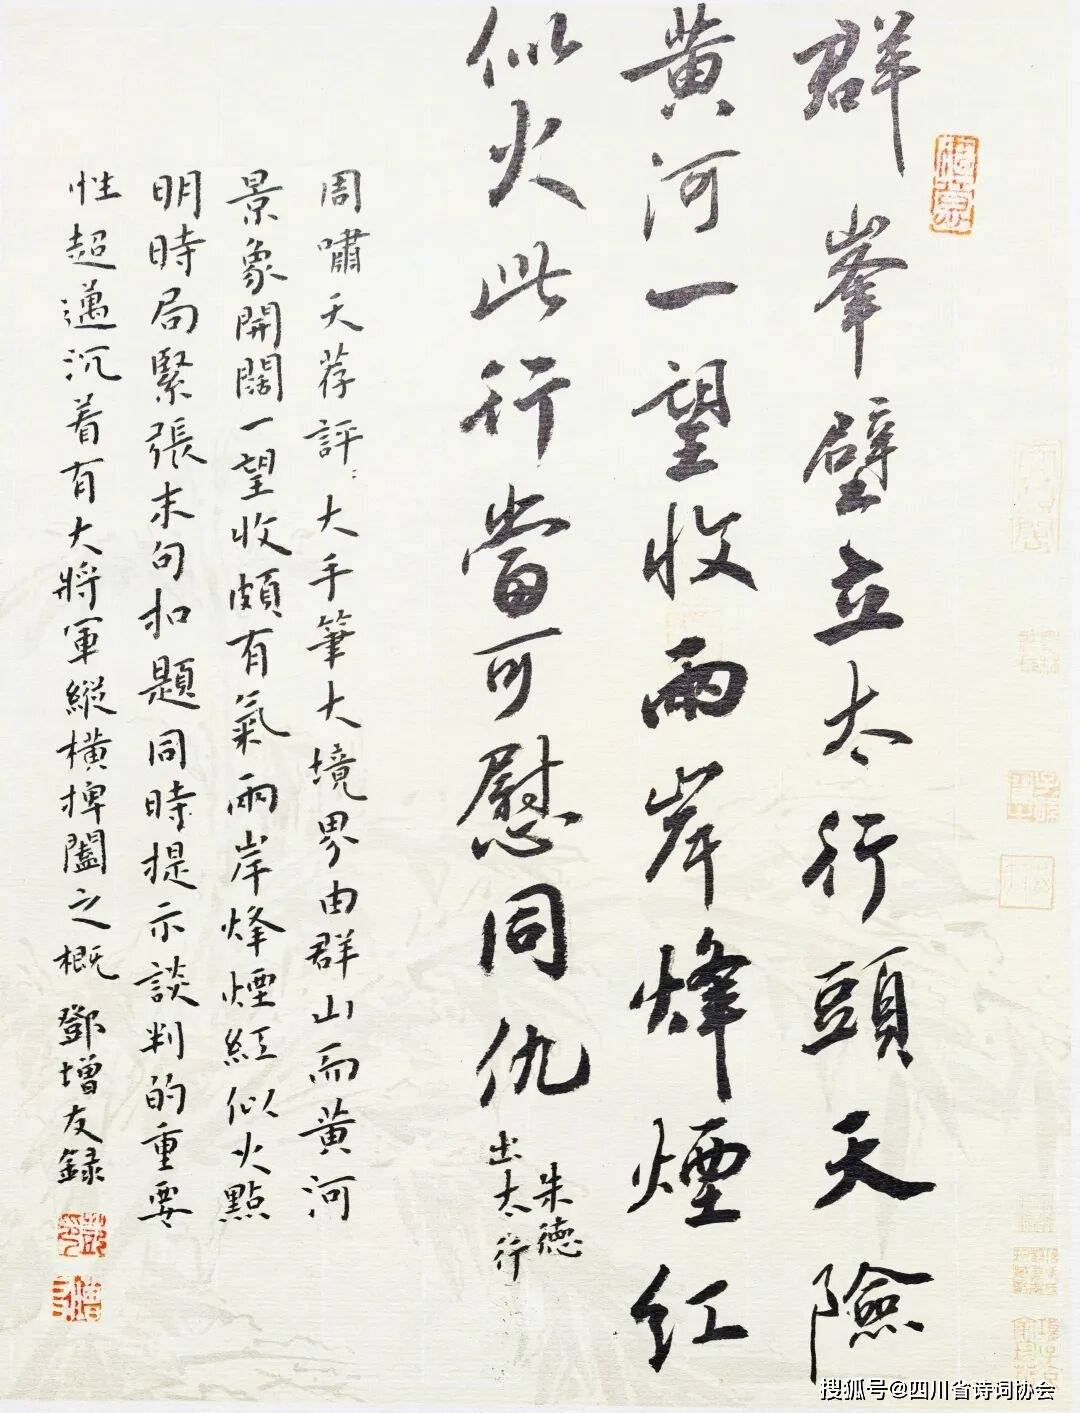 群峯壁立太行頭天險
黃河一望收兩岸烽煙紅
似火此行當可慰同仇
朱德
出太行
周嘯天荐評：大手筆大境界由群山而黃河
景象開闊一望收頗有氣兩岸烽煙紅似火點
明時局緊張末句扣題同時提示談判的重要
性超邁沉着有大將軍縱橫捭闔之概 鄧增友錄
搜狐号@四川省诗词协会